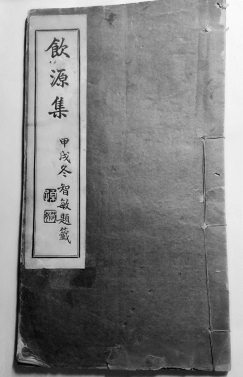 飲源集
甲戌冬智敏題籤